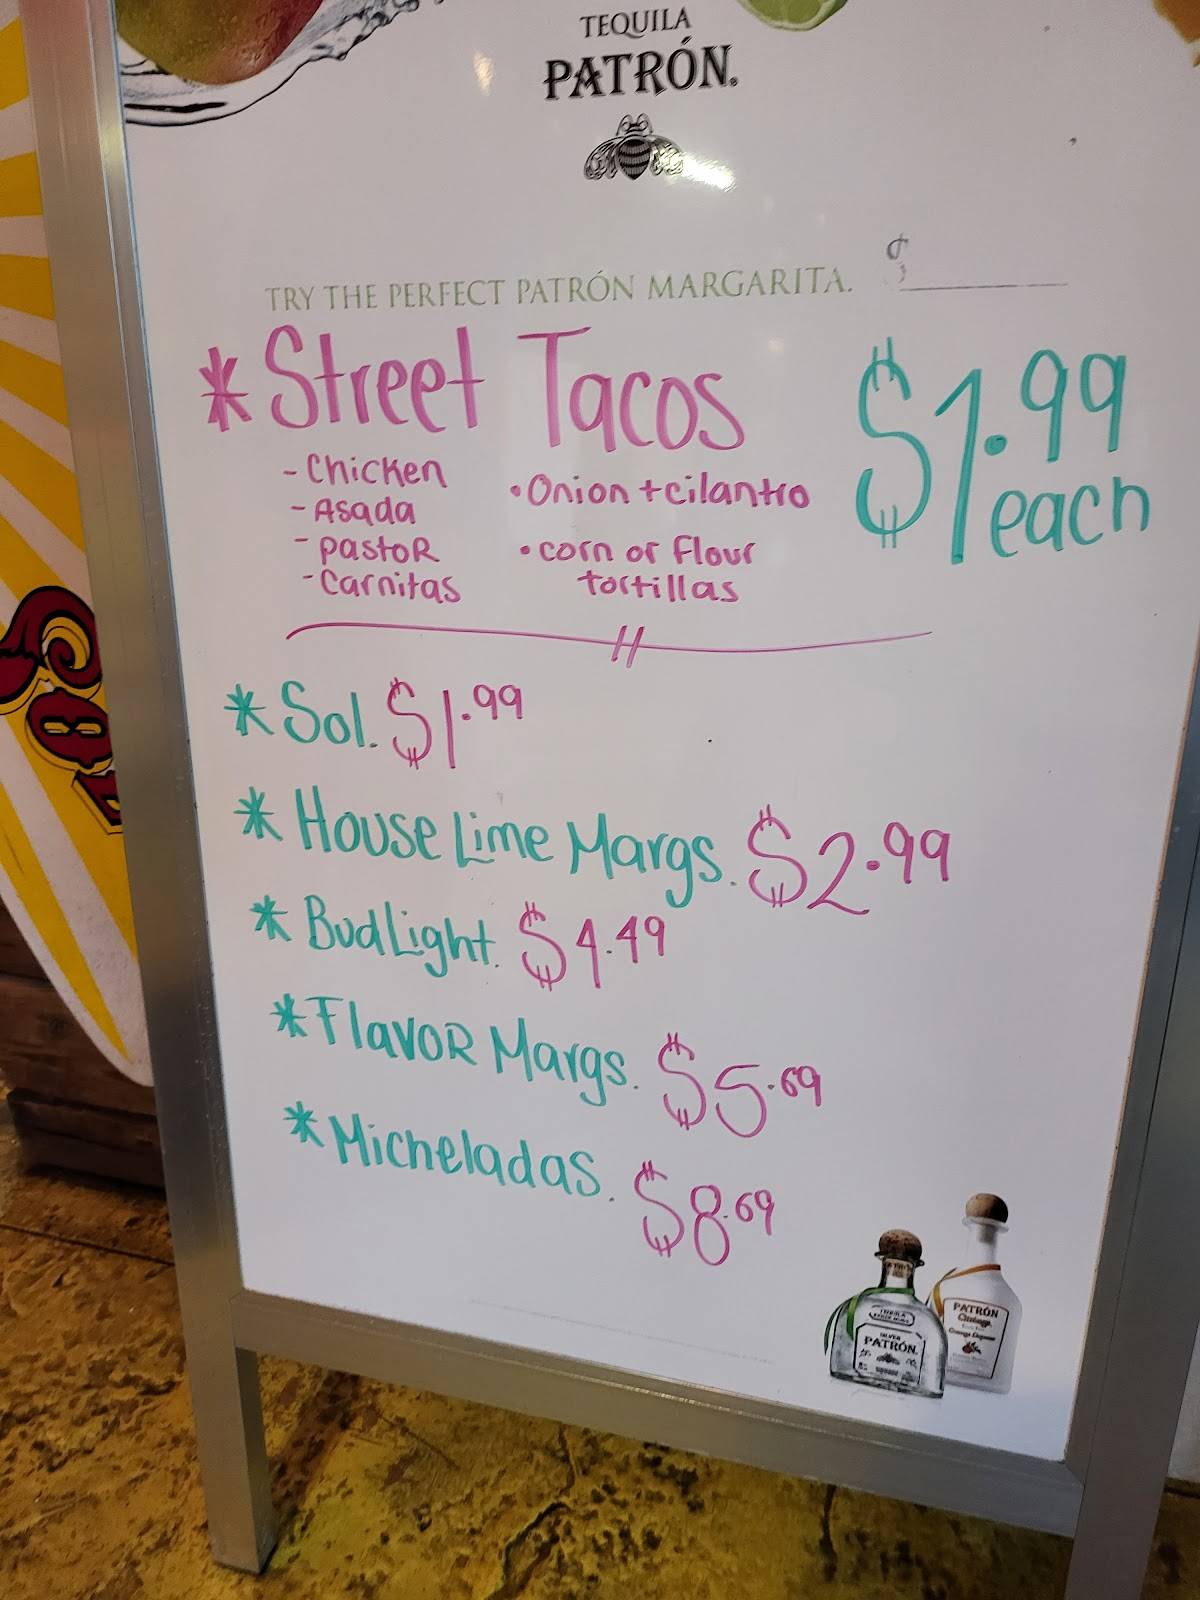 TEQUILA
PATRÓN.
TRY THE PERFECT PATRÓN MARGARITA. $
* Street Tacos $1.99 each
- Chicken
- Asada
- Pastor
- Carnitas
• Onion + cilantro
• corn or Flour
tortillas
* Sol. $1.99
* House Lime Margs. $2.99
* Bud Light. $4.49
* Flavor Margs. $5.69
* Micheladas. $8.69
PATRÓN
Citrónge
PATRÓN